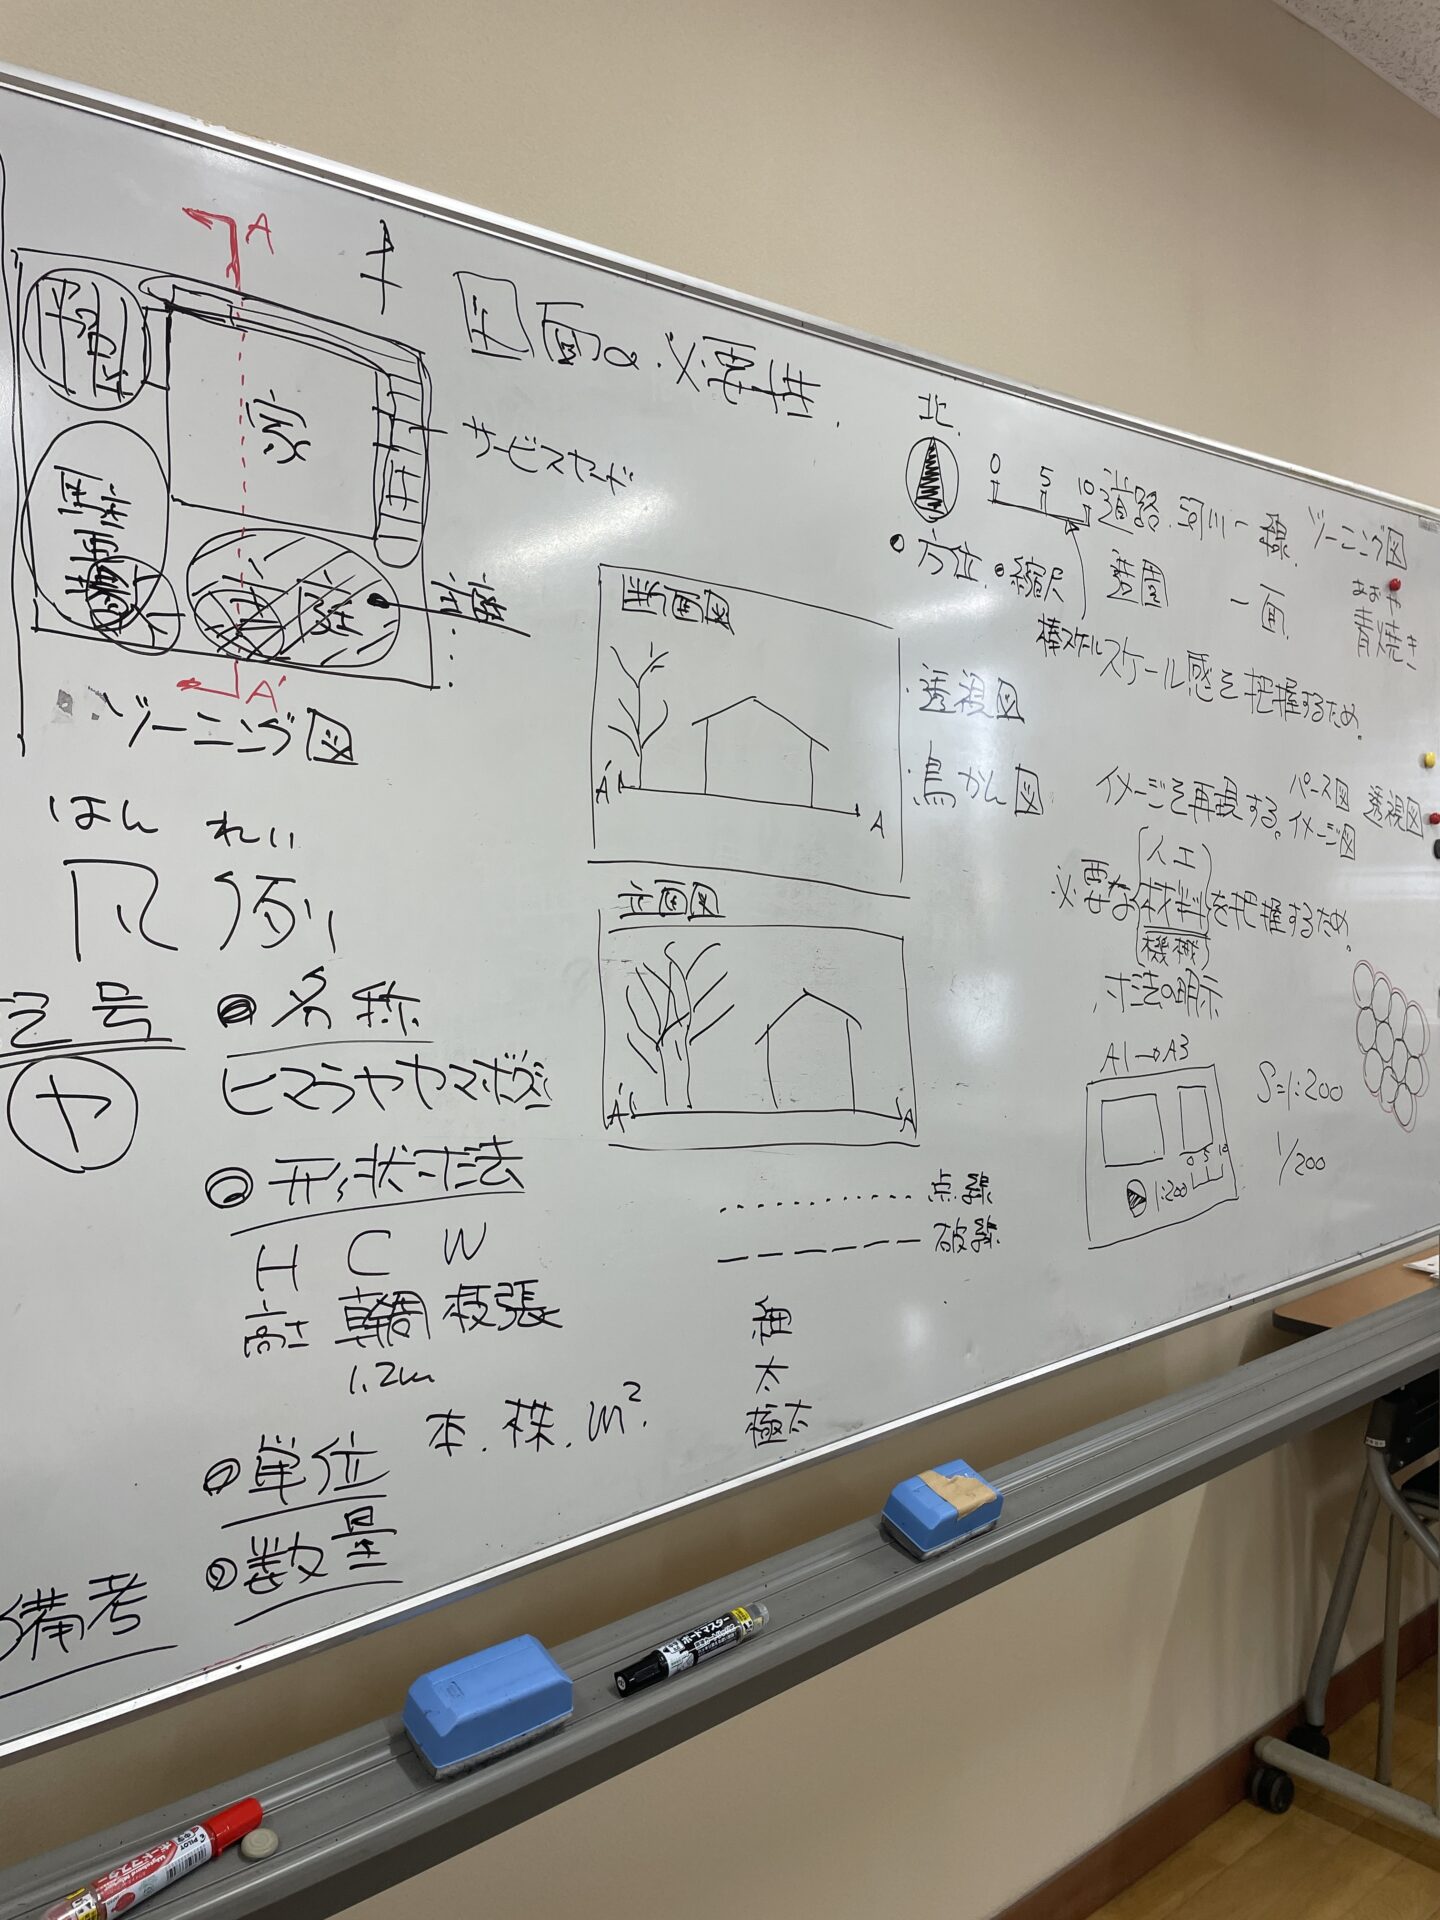 A
図面の必要性.
家
サービスヤード
主庭
A'
ゾーニング図
はんれい
凡例
記号
ヤ
名称
ヒマラヤヤマボウシ
形状寸法
H C W
高さ 幹周 枝張
1.2m
単位 本.株.m².
数量
備考
断面図
A' A
立面図
A' A
・透視図
・鳥かん図
点線
破線
細
太
極太
北
0 5 10
方位. 縮尺
棒スケール
道路.河川 一線.
造園 一面.
ゾーニング図
青焼き
スケール感を把握するため.
イメージを再現する。 パース図 イメージ図 透視図
必要な{人工 材料 機械}を把握するため.
寸法の明示
A1→A3
0 5 10
1:200
S=1:200
1/200